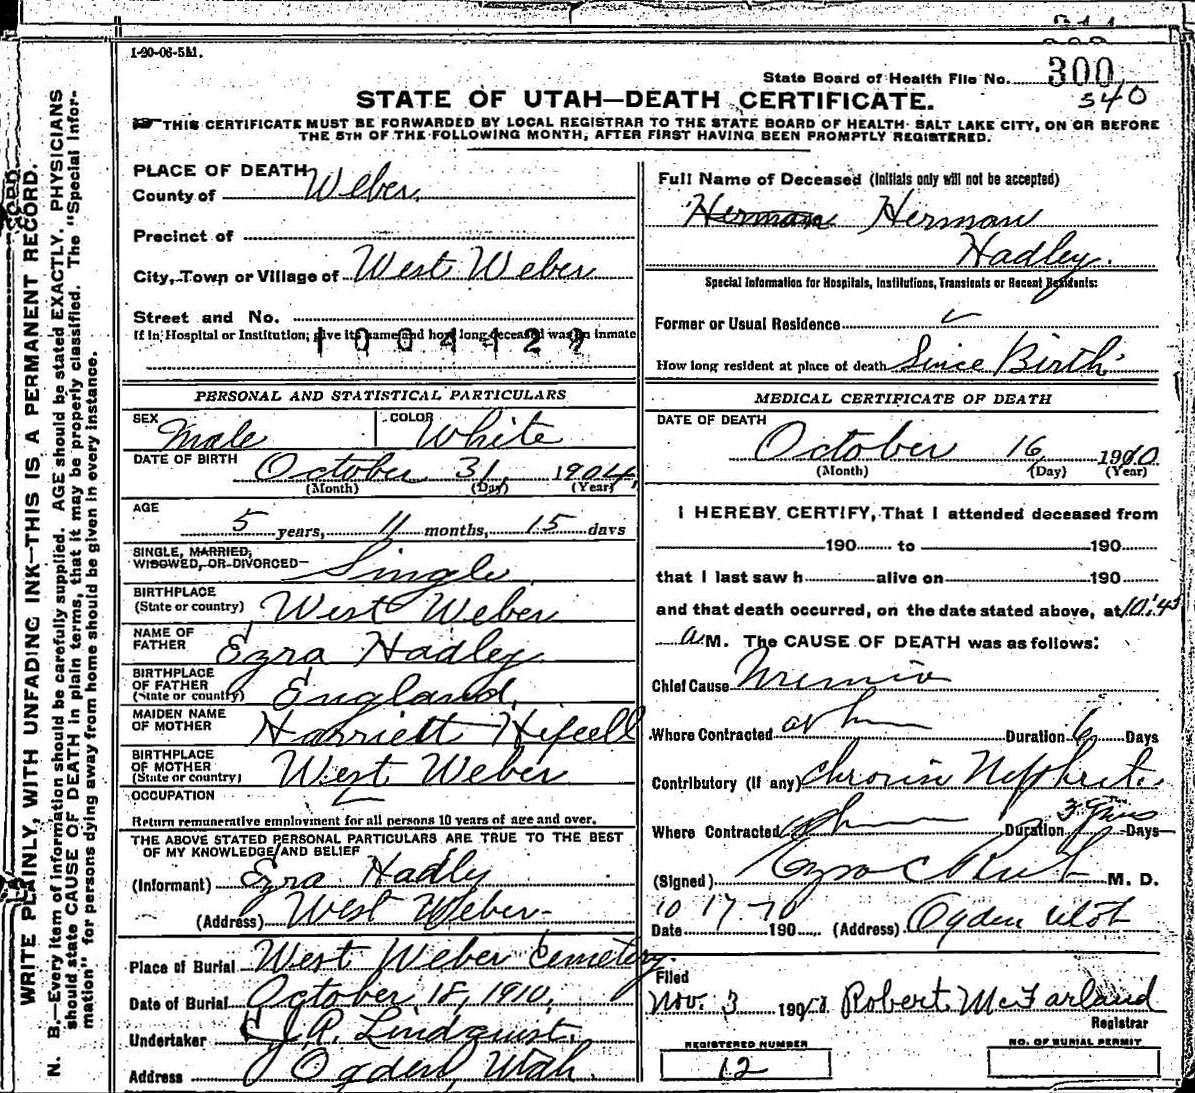 1-20-06-5M.
State Board of Health File No. 300
540
STATE OF UTAH—DEATH CERTIFICATE.
THIS CERTIFICATE MUST BE FORWARDED BY LOCAL REGISTRAR TO THE STATE BOARD OF HEALTH SALT LAKE CITY, ON OR BEFORE
THE 5TH OF THE FOLLOWING MONTH, AFTER FIRST HAVING BEEN PROMPTLY REGISTERED.
WRITE PLAINLY, WITH UNFADING INK—THIS IS A PERMANENT RECORD.
N. B.—Every item of information should be carefully supplied. AGE should be stated EXACTLY. PHYSICIANS
should state CAUSE OF DEATH in plain terms, that it may be properly classified. The "Special Infor-
mation" for persons dying away from home should be given in every instance.
PLACE OF DEATH
County of Weber
Precinct of
City, Town or Village of West Weber
Street and No.
If in Hospital or Institution; give its name and how long deceased was an inmate
1004429
PERSONAL AND STATISTICAL PARTICULARS
SEX Male COLOR White
DATE OF BIRTH October 31 1904
(Month) (Day) (Year)
AGE
5 years, 11 months, 15 days
SINGLE, MARRIED,
WIDOWED, OR DIVORCED Single
BIRTHPLACE
(State or country) West Weber
NAME OF
FATHER Ezra Hadley
BIRTHPLACE
OF FATHER
(State or country) England
MAIDEN NAME
OF MOTHER Harriett
BIRTHPLACE
OF MOTHER
(State or country) West Weber
OCCUPATION
Return remunerative employment for all persons 10 years of age and over.
THE ABOVE STATED PERSONAL PARTICULARS ARE TRUE TO THE BEST
OF MY KNOWLEDGE AND BELIEF
(Informant) Ezra Hadly
(Address) West Weber
Place of Burial West Weber Cemetery.
Date of Burial October 18, 1910.
Undertaker Lindquist.
Address Ogden, Utah.
Full Name of Deceased (Initials only will not be accepted)
Herman Herman
Hadley.
Special Information for Hospitals, Institutions, Transients or Recent Residents:
Former or Usual Residence
How long resident at place of death Since Birth
MEDICAL CERTIFICATE OF DEATH
DATE OF DEATH
October 16 1910
(Month) (Day) (Year)
I HEREBY CERTIFY, That I attended deceased from
190 to 190
that I last saw h alive on 190
and that death occurred, on the date stated above, at 10:45
a M. The CAUSE OF DEATH was as follows:
Chief Cause Uremia
Where Contracted at home Duration 6 Days
Contributory (if any) Chronic Nephritis
Where Contracted at home Duration 3 Days
(Signed) Ezra C Rich M. D.
Date 10 17-10 190 (Address) Ogden Utah
Filed
Nov. 3 190 Robert McFarland
Registrar
REGISTERED NUMBER
12
NO. OF BURIAL PERMIT